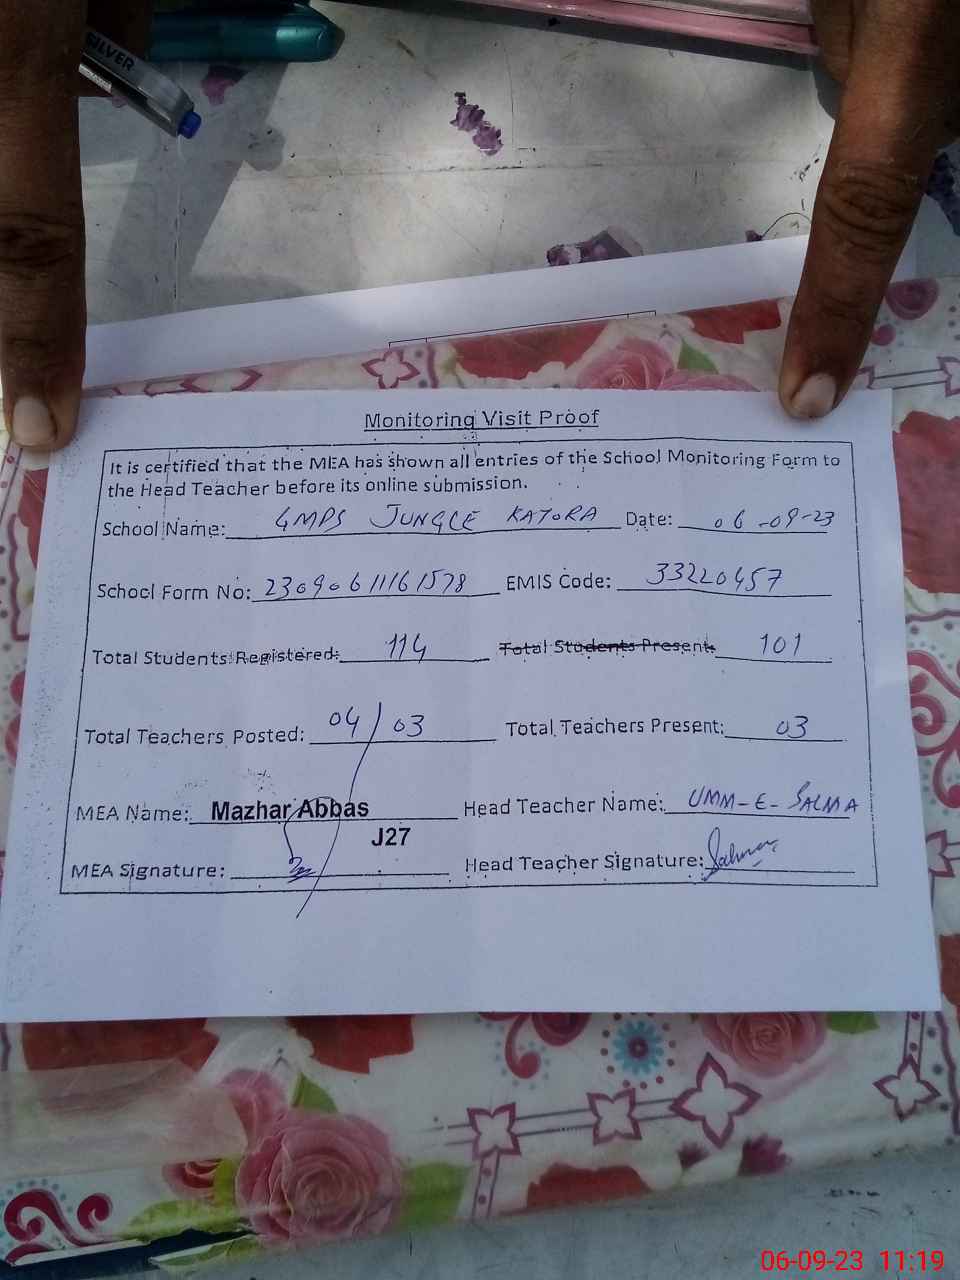 SILVER
Monitoring Visit Proof
It is certified that the MEA has shown all entries of the School Monitoring Form to
the Head Teacher before its online submission.
School Name: GMPS JUNGLE KATORA Date: 06-09-23
School Form No: 23090611161578 EMIS Code: 33220457
Total Students Registered: 114 Total Students Present: 101
Total Teachers Posted: 04/03 Total Teachers Present: 03
MEA Name: Mazhar Abbas Head Teacher Name: UMM-E-SALMA
J27
MEA Signature: Head Teacher Signature: Salma
06-09-23 11:19